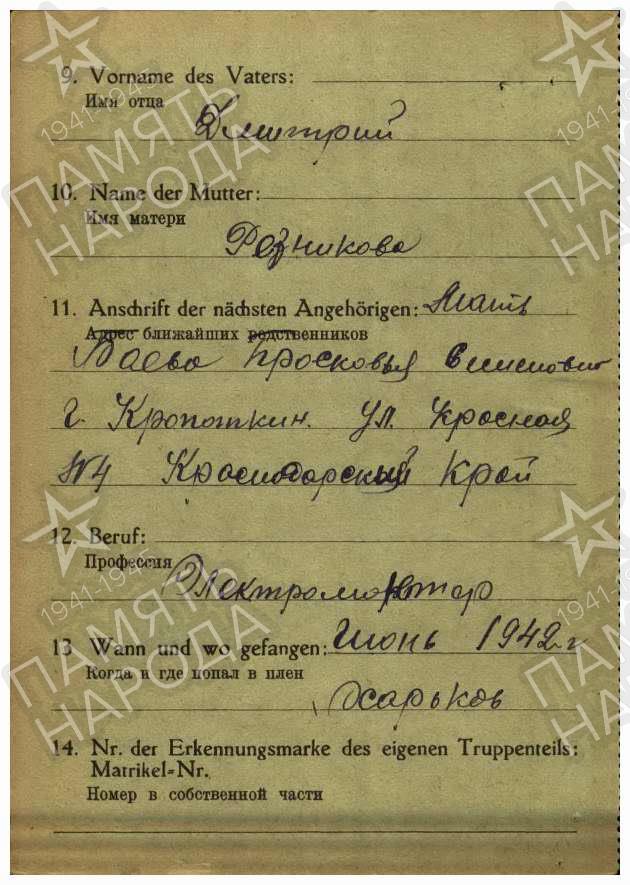 9. Vorname des Vaters:
Имя отца
Дмитрий
10. Name der Mutter:
Имя матери
Резникова
11. Anschrift der nächsten Angehörigen: Мать
Адрес ближайших родственников
Баева Просковья Семеновит
г. Кропоткин. ул. Красная
№4 Краснодарский Край
12. Beruf:
Профессия
Электромонтер
13 Wann und wo gefangen: Июнь 1942 г
Когда и где попал в плен
Харьков
14. Nr. der Erkennungsmarke des eigenen Truppenteils:
Matrikel-Nr.
Номер в собственной части
ПАМЯТЬ НАРОДА
1941-1945